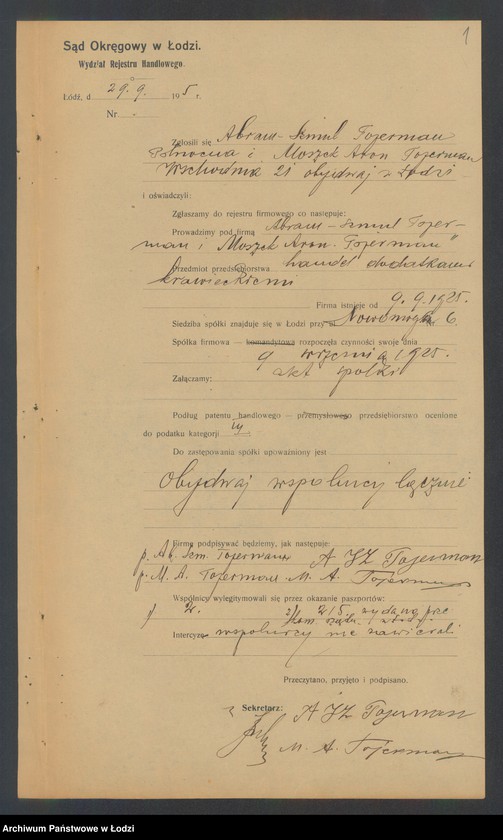 1
Sąd Okręgowy w Łodzi.
Wydział Rejestru Handlowego.
Łódź, d 29. 9. 1925 r.
Nr
Zgłosili się Abram-Szmul Tojerman
Północna i Moszek Aron Tojerman
Wschodnia 21 obydwaj w Łodzi
i oświadczyli:
Zgłaszamy do rejestru firmowego co następuje:
Prowadzimy pod firmą „Abram-Szmul Tojer-
man i Moszek Aron Tojerman"
Przedmiot przedsiębiorstwa handel dodatkami
krawieckiemi
Firma istnieje od 9. 9. 1925.
Siedziba spółki znajduje się w Łodzi przy ul. 6
Spółka firmowa — komandytowa rozpoczęła czynności swoje dnia
9 września 1925.
Załączamy: akt spółki
Podług patentu handlowego — przemysłowego przedsiębiorstwo ocenione
do podatku kategorji III
Do zastępowania spółki upoważniony jest
Obydwaj wspólnicy łącznie
Firmę podpisywać będziemy, jak następuje:
p. Ab. Szm. Tojerman A SZ Tojerman
p. M. A. Tojerman M. A. Tojerman
Wspólnicy wylegitymowali się przez okazanie paszportów:
215 wydaną prze
Intercyz wspólnicy nie zawierali
Przeczytano, przyjęto i podpisano.
Sekretarz: A SZ Tojerman
M. A. Tojerman
Archiwum Państwowe w Łodzi